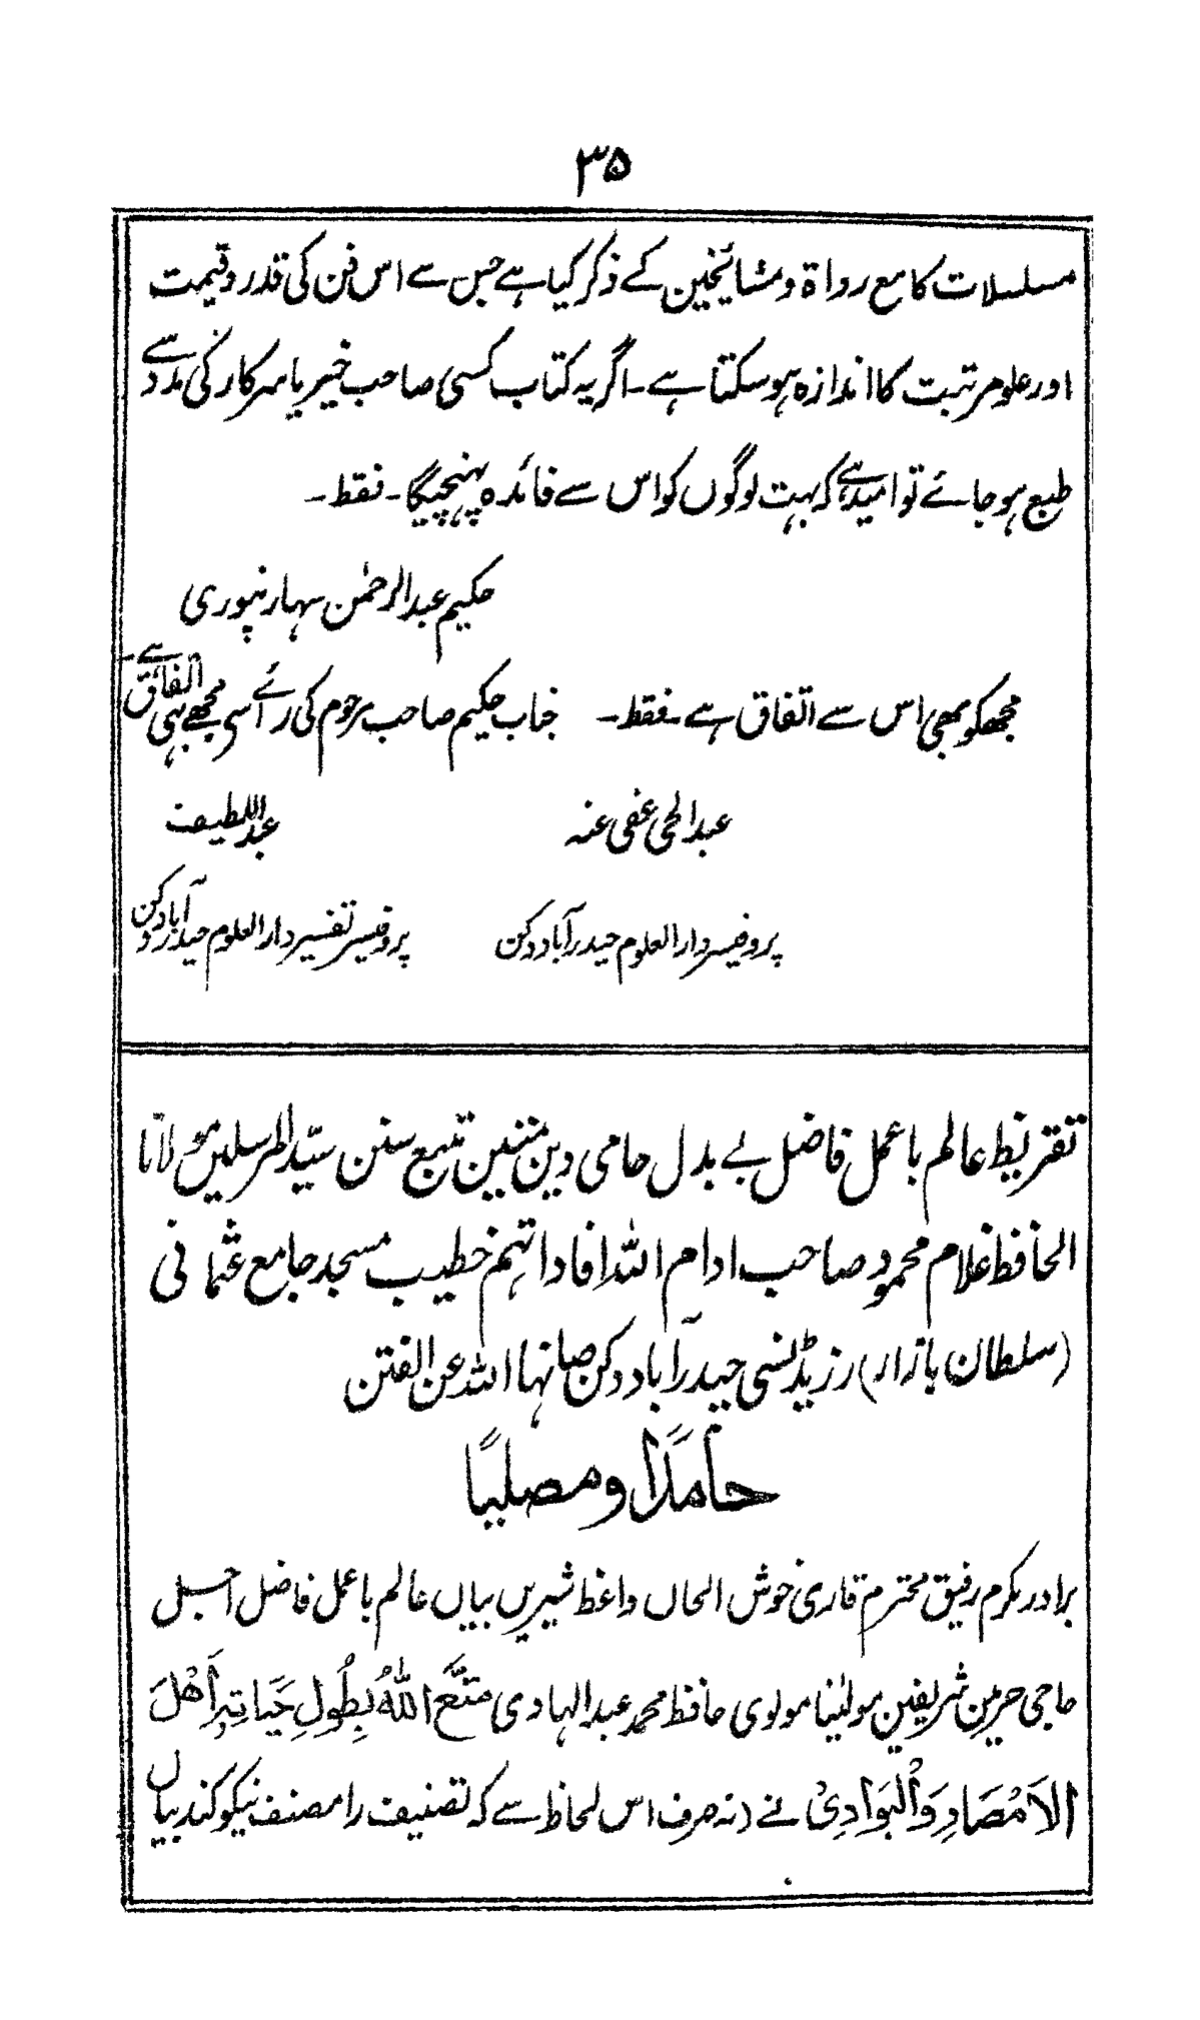 ۳۵
مسلسلات کا مع رواۃ و مشائخین کے ذکر کیا ہے جس سے اس فن کی قدر و قیمت
اور علو مرتبت کا اندازہ ہو سکتا ہے ۔ اگر یہ کتاب کسی صاحب خیر یا سرکار کی مدد سے
طبع ہو جائے تو امید ہے کہ بہت لوگوں کو اس سے فائدہ پہنچیگا ۔ فقط ۔
حکیم عبدالرحمٰن سہارنپوری
مجھکو بھی اس سے اتفاق ہے ۔ فقط ۔
عبدالحی عفی عنہ
پروفیسر دارالعلوم حیدرآباد دکن
جناب حکیم صاحب مرحوم کی رائے سے مجھے بھی اتفاق ہے ۔
عبداللطیف
پروفیسر تفسیر دارالعلوم حیدرآباد دکن
تقریظ عالم باعمل فاضل بے بدل حامی دین متین متبع سنن سیّد المرسلین مولانا
الحافظ غلام محمود صاحب ادام اللہ افاداتہم خطیب مسجد جامع عثمانی
(سلطان بازار) رزیڈنسی حیدرآباد دکن صانہا اللہ عن الفتن
حامدًا و مصلیًا
برادر مکرم رفیق محترم قاری خوش الحاں واعظ شیریں بیاں عالم باعمل فاضل اجل
حاجی حرمین شریفین مولٰینا مولوی حافظ محمد عبدالہادی مَتَّعَ اللّٰہُ بِطُولِ حَیَاتِہٖ اَھْلَ
الاَمْصَارِ وَالْبَوَادِیْ نے (نہ صرف اس لحاظ سے کہ تصنیف را مصنف نیکو کند بیاں